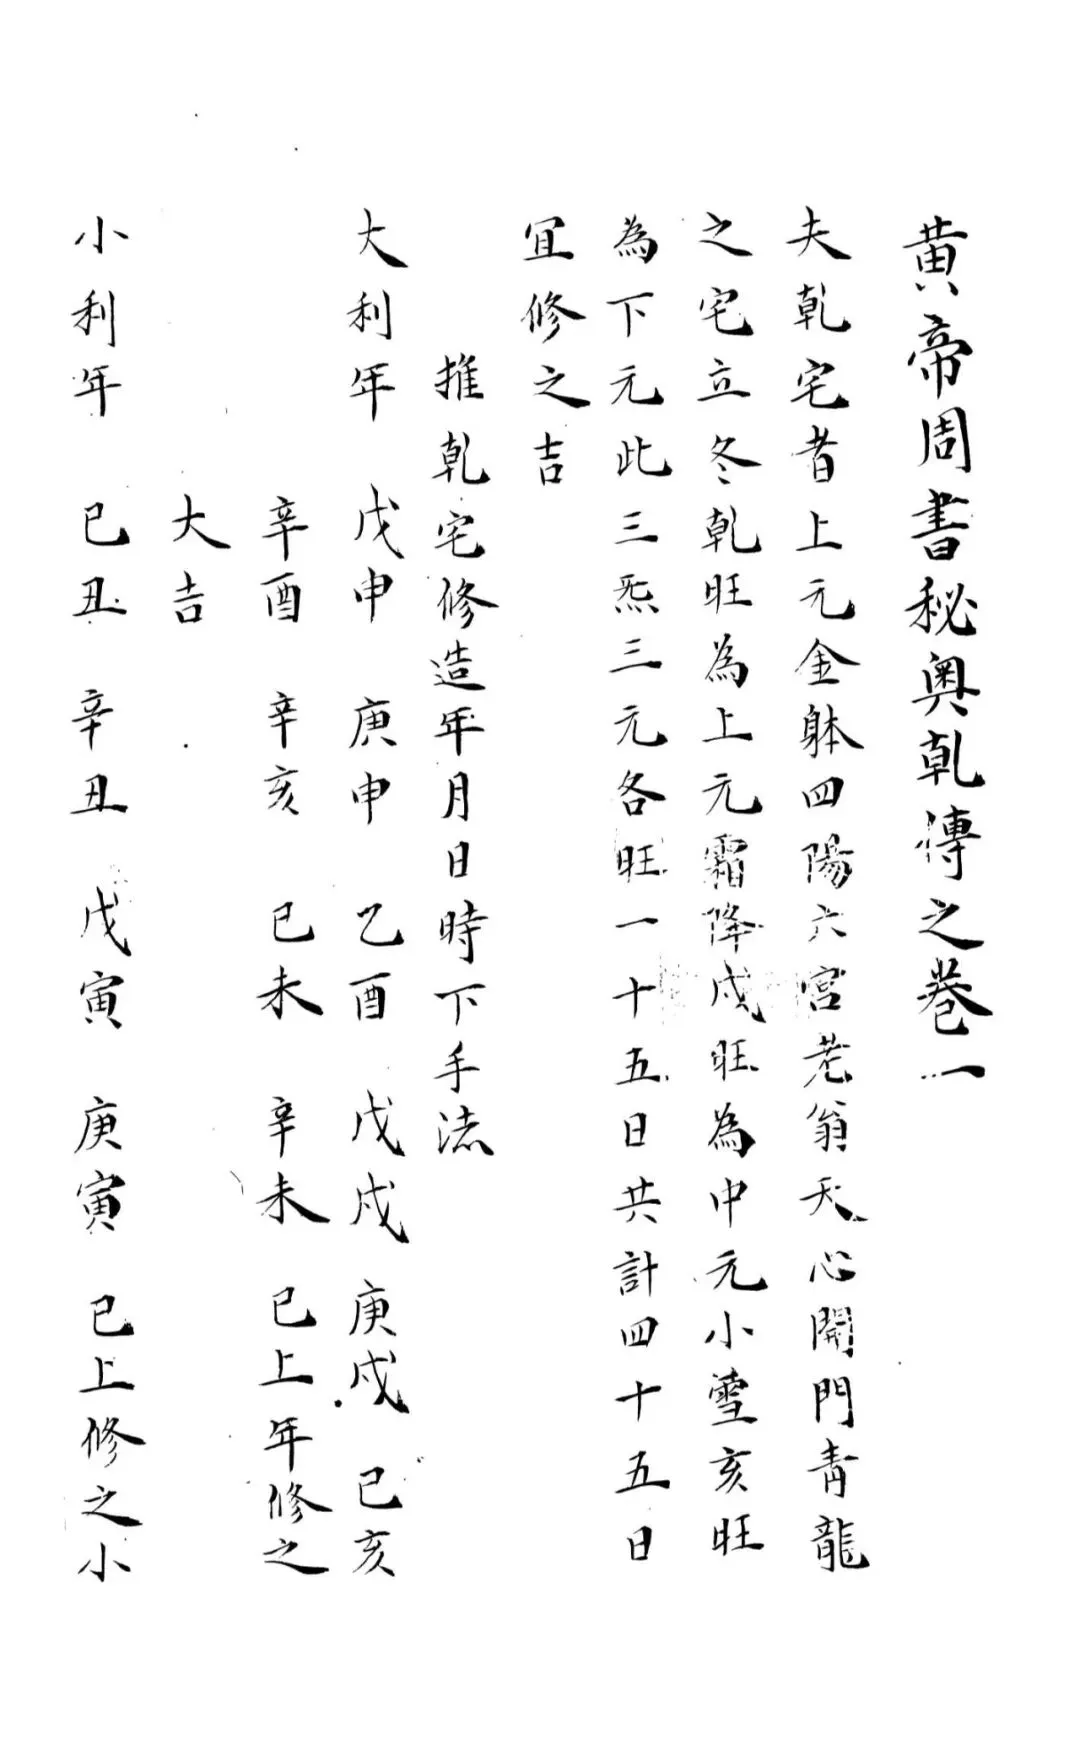 黃帝周書秘奧乹傳之卷一
夫乹宅者上元金躰四陽六宮老翁天心開門青龍
之宅立冬乹旺為上元霜降戌旺為中元小雪亥旺
為下元此三炁三元各旺一十五日共計四十五日
宜修之吉
推乹宅修造年月日時下手法
大利年 戊申 庚申 乙酉 戊戌 庚戌 己亥
辛酉 辛亥 己未 辛未 已上年修之
大吉
小利年 己丑 辛丑 戊寅 庚寅 已上修之小